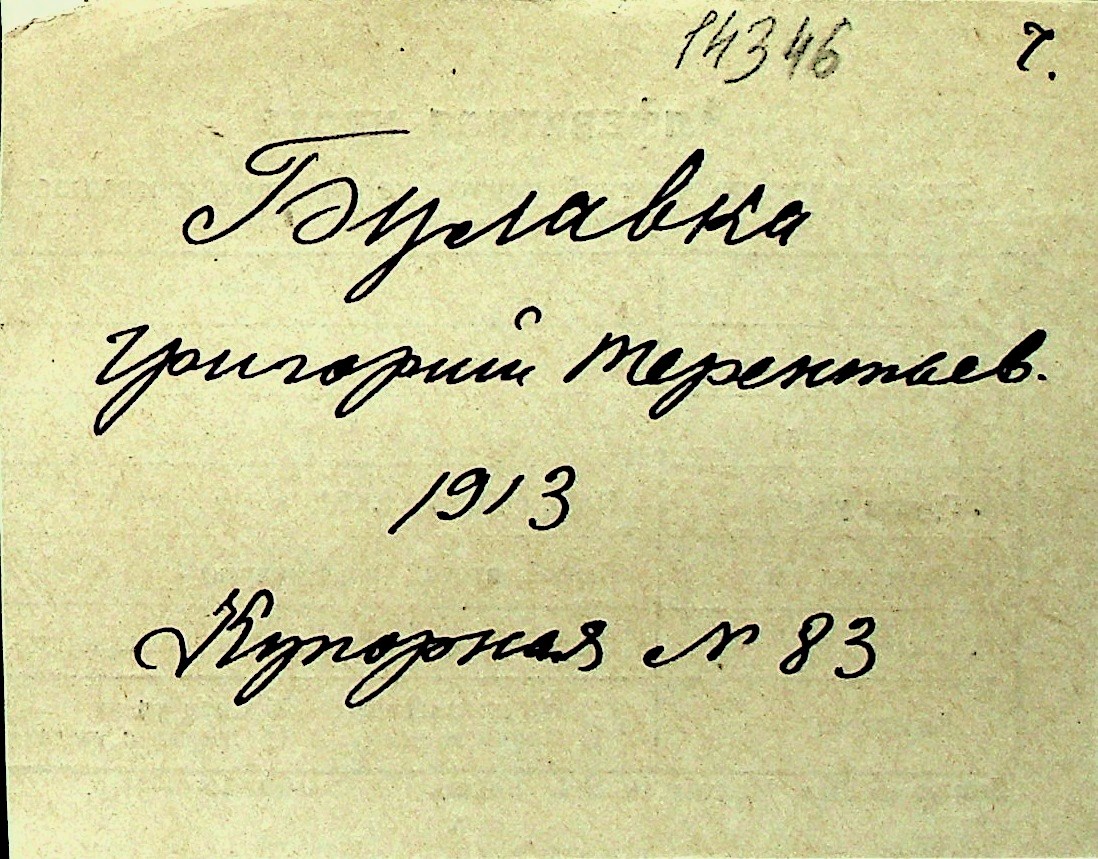 14346 7.
Булавка
Григорий Терентьев.
1913
Купорная № 83